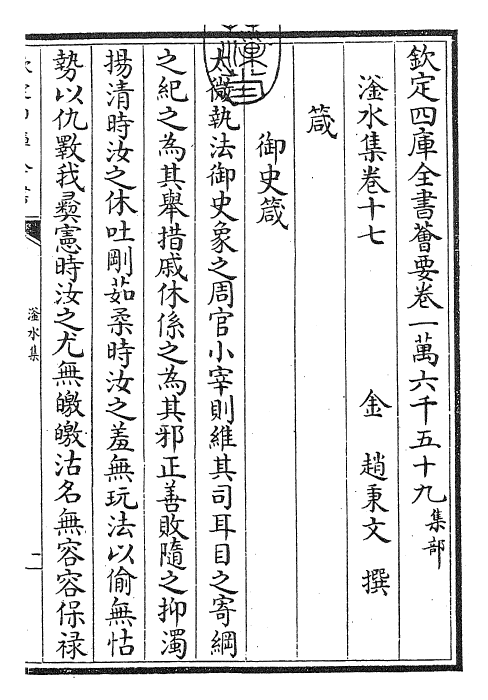 欽定四庫全書薈要卷一萬六千五十九集部
滏水集卷十七 金 趙秉文 撰
箴
御史箴
太微執法御史象之周官小宰則維其司耳目之寄綱
之紀之為其舉措戚休係之為其邪正善敗隨之抑濁
揚清時汝之休吐剛茹柔時汝之羞無玩法以偷無怙
勢以仇斁我彛憲時汝之尤無皦皦沽名無容容保祿
滏水集